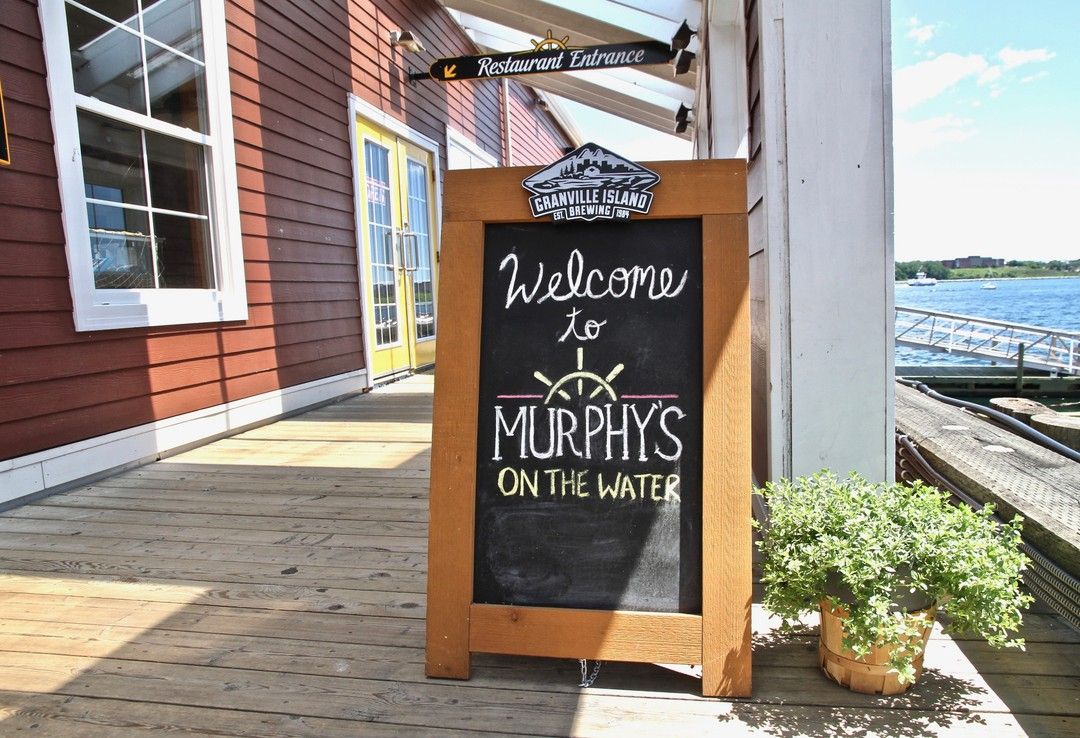 Restaurant Entrance
GRANVILLE ISLAND
EST. BREWING 1984
Welcome
to
MURPHY'S
ON THE WATER